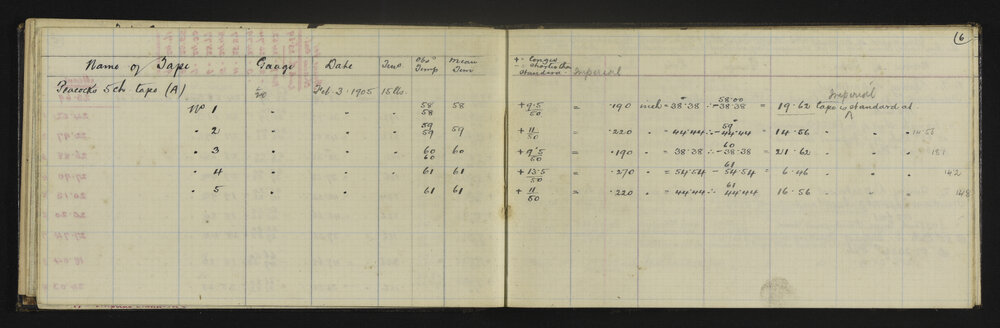 (6
Name of Tape. Gauge Date Tens Obsd Temp Mean Tem + = longer - = shorter than standard. Imperial
Peacocks 5 ch tape (A) Feb. 3. 1905 15 lbs. Imperial
No 1 58 58 58 + 9.5/50 = .190 inch = 38.38 ∴ 58.00 - 38.38 = 19.62 tape is standard at
" 2 " " " 59 59 59 + 11/50 = .220 " = 44.44 ∴ 59° - 44.44 = 14.56 " " " 14.56
" 3 " " " 60 60 60 + 9.5/50 = .190 " = 38.38 ∴ 60 - 38.38 = 21.62 " " "
" 4 " " " 61 61 + 13.5/50 = .270 " = 54.54 ∴ 61 - 54.54 = 6.46 " " "
" 5 " " " 61 61 + 11/50 = .220 " = 44.44 ∴ 61 - 44.44 = 16.56 " " "